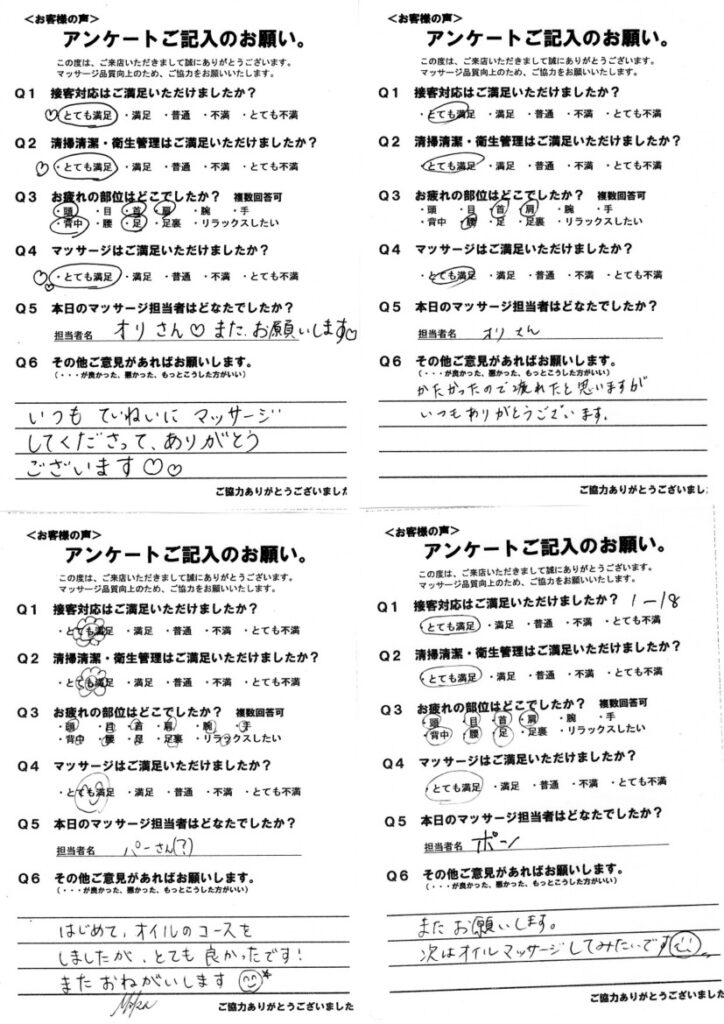 <お客様の声>
アンケートご記入のお願い。
この度は、ご来店いただきまして誠にありがとうございます。
マッサージ品質向上のため、ご協力をお願いいたします。
Q1 接客対応はご満足いただけましたか?
・とても満足 ・満足 ・普通 ・不満 ・とても不満
Q2 清掃清潔・衛生管理はご満足いただけましたか?
・とても満足 ・満足 ・普通 ・不満 ・とても不満
Q3 お疲れの部位はどこでしたか? 複数回答可
・頭 ・目 ・首 ・肩 ・腕 ・手
・背中 ・腰 ・足 ・足裏 ・リラックスしたい
Q4 マッサージはご満足いただけましたか?
・とても満足 ・満足 ・普通 ・不満 ・とても不満
Q5 本日のマッサージ担当者はどなたでしたか?
担当者名 オリさん♡ また、お願いします♡
Q6 その他ご意見があればお願いします。
(・・・が良かった、悪かった、もっとこうした方がいい)
いつも ていねいに マッサージ
してくださって、ありがとう
ございます♡♡
ご協力ありがとうございました
<お客様の声>
アンケートご記入のお願い。
この度は、ご来店いただきまして誠にありがとうございます。
マッサージ品質向上のため、ご協力をお願いいたします。
Q1 接客対応はご満足いただけましたか?
・とても満足 ・満足 ・普通 ・不満 ・とても不満
Q2 清掃清潔・衛生管理はご満足いただけましたか?
・とても満足 ・満足 ・普通 ・不満 ・とても不満
Q3 お疲れの部位はどこでしたか? 複数回答可
・頭 ・目 ・首 ・肩 ・腕 ・手
・背中 ・腰 ・足 ・足裏 ・リラックスしたい
Q4 マッサージはご満足いただけましたか?
・とても満足 ・満足 ・普通 ・不満 ・とても不満
Q5 本日のマッサージ担当者はどなたでしたか?
担当者名 オリさん
Q6 その他ご意見があればお願いします。
(・・・が良かった、悪かった、もっとこうした方がいい)
かたかったので疲れたと思いますが
いつもありがとうございます。
ご協力ありがとうございまし
<お客様の声>
アンケートご記入のお願い。
この度は、ご来店いただきまして誠にありがとうございます。
マッサージ品質向上のため、ご協力をお願いいたします。
Q1 接客対応はご満足いただけましたか?
・とても満足 ・満足 ・普通 ・不満 ・とても不満
Q2 清掃清潔・衛生管理はご満足いただけましたか?
・とても満足 ・満足 ・普通 ・不満 ・とても不満
Q3 お疲れの部位はどこでしたか? 複数回答可
・頭 ・目 ・首 ・肩 ・腕 ・手
・背中 ・腰 ・足 ・足裏 ・リラックスしたい
Q4 マッサージはご満足いただけましたか?
・とても満足 ・満足 ・普通 ・不満 ・とても不満
Q5 本日のマッサージ担当者はどなたでしたか?
担当者名 パーさん(?)
Q6 その他ご意見があればお願いします。
(・・・が良かった、悪かった、もっとこうした方がいい)
はじめて、オイルのコースを
しましたが、とても良かったです!
またおねがいします
ご協力ありがとうございました
<お客様の声>
アンケートご記入のお願い。
この度は、ご来店いただきまして誠にありがとうございます。
マッサージ品質向上のため、ご協力をお願いいたします。
Q1 接客対応はご満足いただけましたか? 1-18
・とても満足 ・満足 ・普通 ・不満 ・とても不満
Q2 清掃清潔・衛生管理はご満足いただけましたか?
・とても満足 ・満足 ・普通 ・不満 ・とても不満
Q3 お疲れの部位はどこでしたか? 複数回答可
・頭 ・目 ・首 ・肩 ・腕 ・手
・背中 ・腰 ・足 ・足裏 ・リラックスしたい
Q4 マッサージはご満足いただけましたか?
・とても満足 ・満足 ・普通 ・不満 ・とても不満
Q5 本日のマッサージ担当者はどなたでしたか?
担当者名 ポン
Q6 その他ご意見があればお願いします。
(・・・が良かった、悪かった、もっとこうした方がいい)
またお願いします。
次はオイルマッサージしてみたいです
ご協力ありがとうございました